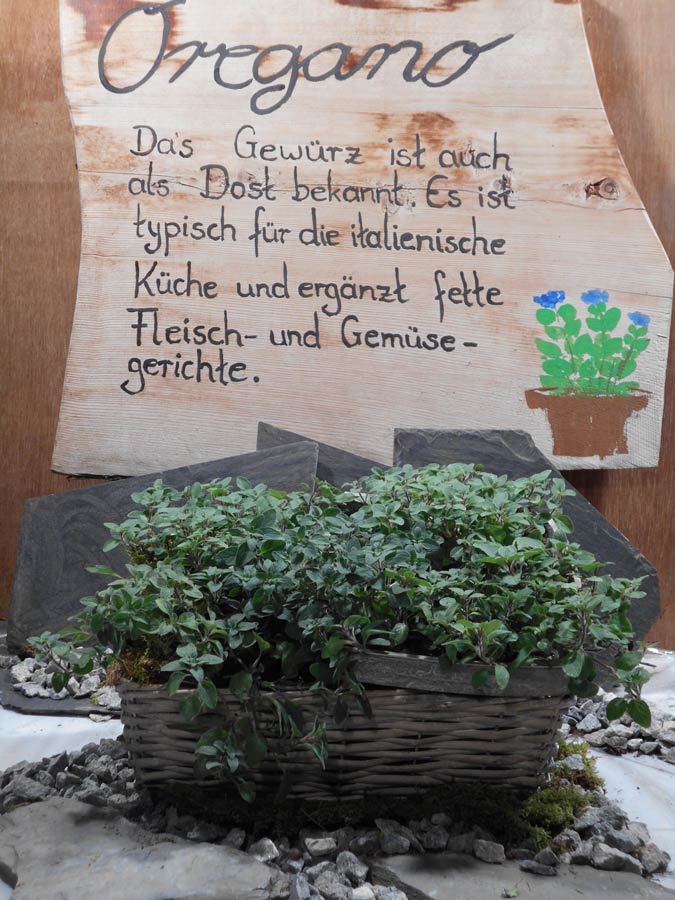 Oregano
Das Gewürz ist auch
als Dost bekannt. Es ist
typisch für die italienische
Küche und ergänzt fette
Fleisch- und Gemüse-
gerichte.